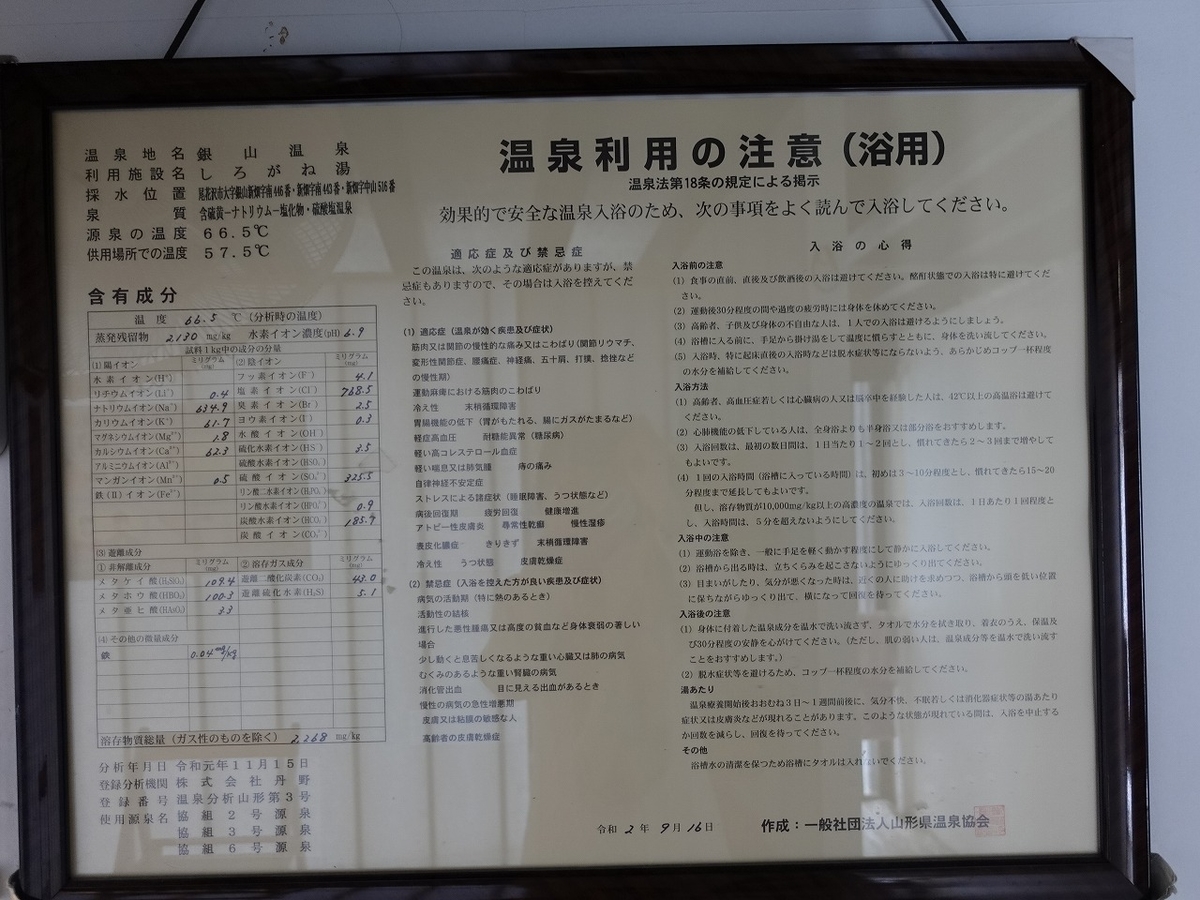 温泉利用の注意（浴用）
温泉法第18条の規定による掲示
効果的で安全な温泉入浴のため、次の事項をよく読んで入浴してください。
温泉地名 銀山温泉
利用施設名 しろがね湯
採水位置 尾花沢市大字銀山新畑字南446番・新畑字南443番・新畑字中山516番
泉質 含硫黄－ナトリウム－塩化物・硫酸塩温泉
源泉の温度 66.5℃
供用場所での温度 57.5℃
含有成分
温度 66.5 ℃（分析時の温度）
蒸発残留物 2130 mg/kg 水素イオン濃度(pH) 6.9
試料1kg中の成分の分量
(1) 陽イオン ミリグラム(mg) (2) 陰イオン ミリグラム(mg)
水素イオン(H⁺) フッ素イオン(F⁻) 4.1
リチウムイオン(Li⁺) 0.4 塩素イオン(Cl⁻) 768.5
ナトリウムイオン(Na⁺) 634.9 臭素イオン(Br⁻) 2.5
カリウムイオン(K⁺) 61.7 ヨウ素イオン(I⁻) 0.3
マグネシウムイオン(Mg²⁺) 1.8 水酸イオン(OH⁻)
カルシウムイオン(Ca²⁺) 62.3 硫化水素イオン(HS⁻) 3.5
アルミニウムイオン(Al³⁺) 硫酸水素イオン(HSO₄⁻)
マンガンイオン(Mn²⁺) 0.5 硫酸イオン(SO₄²⁻) 325.5
鉄(Ⅱ)イオン(Fe²⁺) リン酸二水素イオン(H₂PO₄⁻)
リン酸水素イオン(HPO₄²⁻) 0.9
炭酸水素イオン(HCO₃⁻) 185.7
炭酸イオン(CO₃²⁻)
(3) 遊離成分
① 非解離成分 ミリグラム(mg) ② 溶存ガス成分 ミリグラム(mg)
メタケイ酸(H₂SiO₃) 109.4 遊離二酸化炭素(CO₂) 43.0
メタホウ酸(HBO₂) 100.3 遊離硫化水素(H₂S) 5.1
メタ亜ヒ酸(HAsO₂) 3.3
(4) その他の微量成分
鉄 0.04 mg/kg
溶存物質総量（ガス性のものを除く） 2,268 mg/kg
分析年月日 令和元年11月15日
登録分析機関 株式会社丹野
登録番号 温泉分析山形第3号
使用源泉名 協組2号源泉
協組3号源泉
協組6号源泉
適応症及び禁忌症
この温泉は、次のような適応症がありますが、禁
忌症もありますので、その場合は入浴を控えてくだ
さい。
(1) 適応症（温泉が効く疾患及び症状）
筋肉又は関節の慢性的な痛み又はこわばり（関節リウマチ、
変形性関節症、腰痛症、神経痛、五十肩、打撲、捻挫など
の慢性期）
運動麻痺における筋肉のこわばり
冷え性 末梢循環障害
胃腸機能の低下（胃がもたれる、腸にガスがたまるなど）
軽症高血圧 耐糖能異常（糖尿病）
軽い高コレステロール血症
軽い喘息又は肺気腫 痔の痛み
自律神経不安定症
ストレスによる諸症状（睡眠障害、うつ状態など）
病後回復期 疲労回復 健康増進
アトピー性皮膚炎 尋常性乾癬 慢性湿疹
表皮化膿症 きりきず 末梢循環障害
冷え性 うつ状態 皮膚乾燥症
(2) 禁忌症（入浴を控えた方が良い疾患及び症状）
病気の活動期（特に熱のあるとき）
活動性の結核
進行した悪性腫瘍又は高度の貧血など身体衰弱の著しい
場合
少し動くと息苦しくなるような重い心臓又は肺の病気
むくみのあるような重い腎臓の病気
消化管出血 目に見える出血があるとき
慢性の病気の急性増悪期
皮膚又は粘膜の敏感な人
高齢者の皮膚乾燥症
入浴の心得
入浴前の注意
(1) 食事の直前、直後及び飲酒後の入浴は避けてください。酩酊状態での入浴は特に避けてくだ
さい。
(2) 運動後30分程度の間や過度の疲労時には身体を休めてください。
(3) 高齢者、子供及び身体の不自由な人は、1人での入浴は避けるようにしましょう。
(4) 浴槽に入る前に、手足から掛け湯をして温度に慣らすとともに、身体を洗い流してください。
(5) 入浴時、特に起床直後の入浴時などは脱水症状等にならないよう、あらかじめコップ一杯程度
の水分を補給してください。
入浴方法
(1) 高齢者、高血圧症若しくは心臓病の人又は脳卒中を経験した人は、42℃以上の高温浴は避けて
ください。
(2) 心肺機能の低下している人は、全身浴よりも半身浴又は部分浴をおすすめします。
(3) 入浴回数は、最初の数日間は、1日当たり1～2回とし、慣れてきたら2～3回まで増やして
もよいです。
(4) 1回の入浴時間（浴槽に入っている時間）は、初めは3～10分程度とし、慣れてきたら15～20
分程度まで延長してもよいです。
但し、溶存物質が10,000mg/kg以上の高濃度の温泉では、入浴回数は、1日あたり1回程度と
し、入浴時間は、5分を超えないようにしてください。
入浴中の注意
(1) 運動浴を除き、一般に手足を軽く動かす程度にして静かに入浴してください。
(2) 浴槽から出る時は、立ちくらみを起こさないようにゆっくり出てください。
(3) 目まいがしたり、気分が悪くなった時は、近くの人に助けを求めつつ、浴槽から頭を低い位置
に保ちながらゆっくり出て、横になって回復を待ってください。
入浴後の注意
(1) 身体に付着した温泉成分を温水で洗い流さず、タオルで水分を拭き取り、着衣のうえ、保温及
び30分程度の安静を心がけてください。（ただし、肌の弱い人は、温泉成分等を温水で洗い流す
ことをおすすめします。）
(2) 脱水症状等を避けるため、コップ一杯程度の水分を補給してください。
湯あたり
温泉療養開始後おおむね3日～1週間前後に、気分不快、不眠若しくは消化器症状等の湯あたり
症状又は皮膚炎などが現れることがあります。このような状態が現れている間は、入浴を中止する
か回数を減らし、回復を待ってください。
その他
浴槽水の清潔を保つため浴槽にタオルは入れないでください。
令和 2 年 9 月 16 日 作成：一般社団法人山形県温泉協会